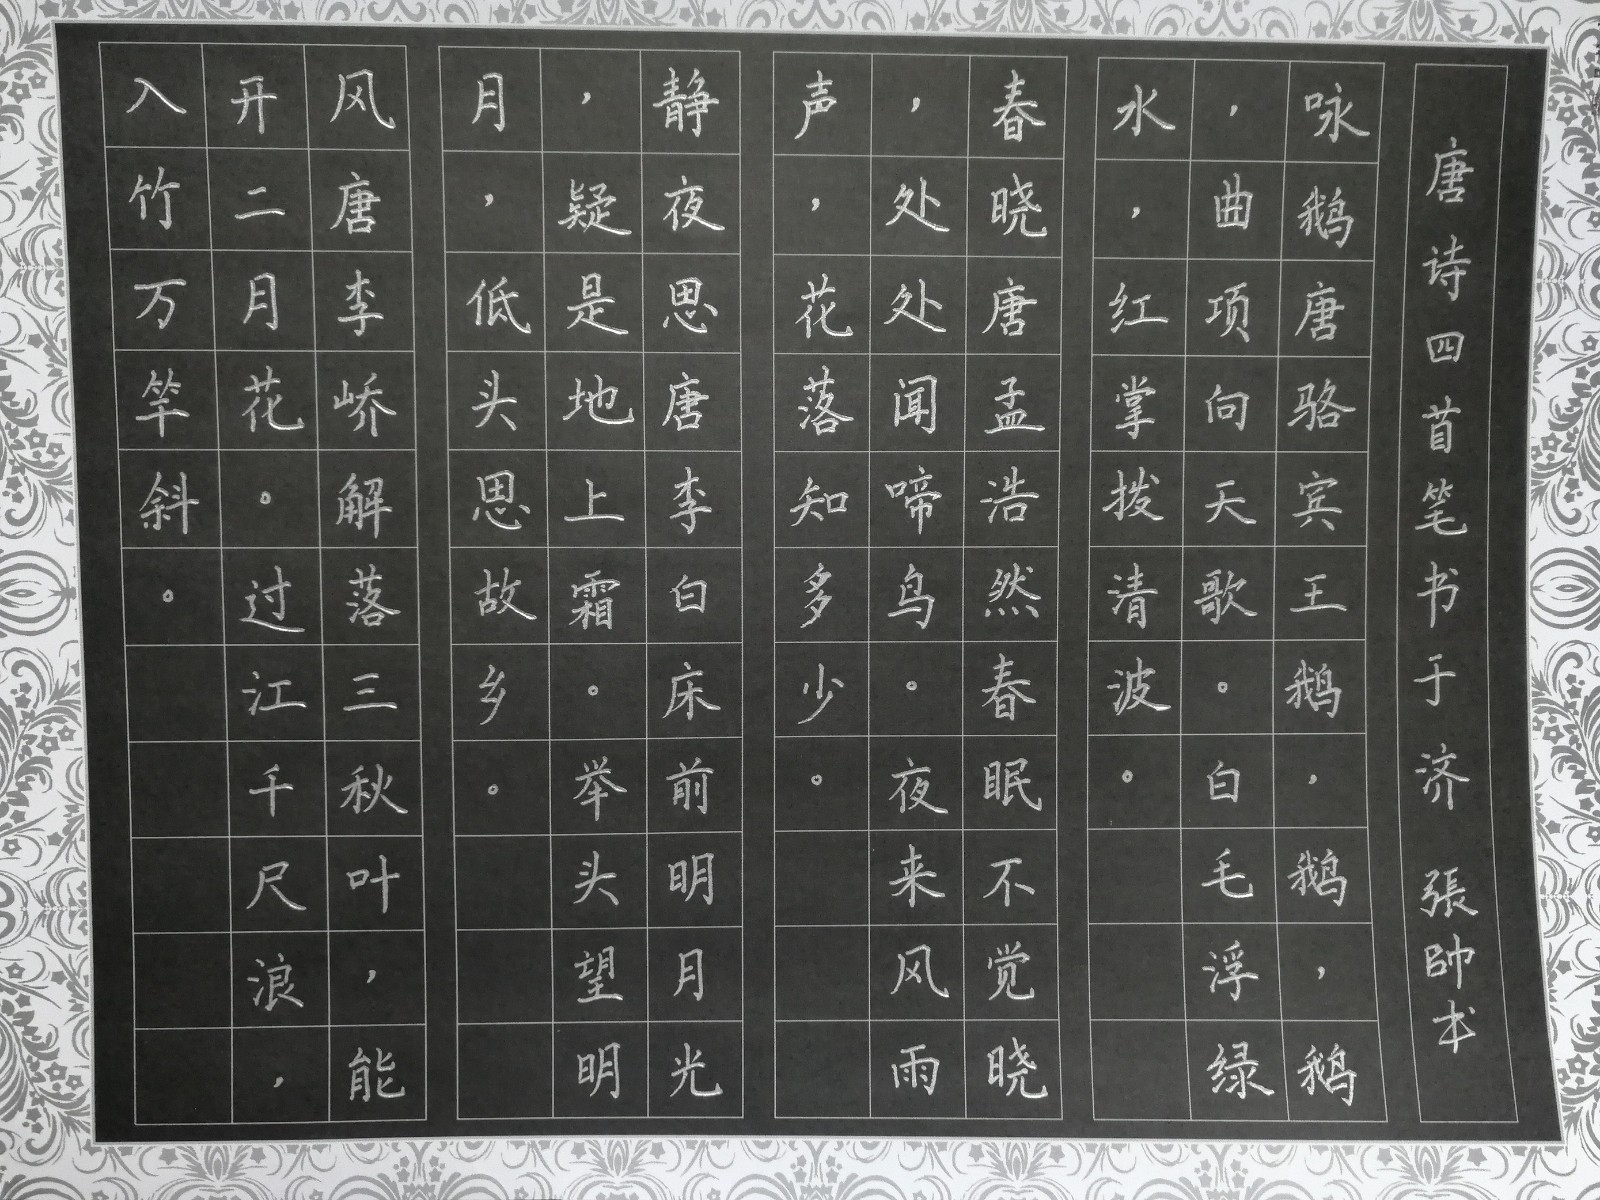 唐诗四首笔书于济 張帥本
咏鹅唐骆宾王鹅，鹅，鹅
，曲项向天歌。白毛浮绿
水，红掌拨清波。
春晓唐孟浩然春眠不觉晓
，处处闻啼鸟。夜来风雨
声，花落知多少。
静夜思唐李白床前明月光
，疑是地上霜。举头望明
月，低头思故乡。
风唐李峤解落三秋叶，能
开二月花。过江千尺浪，
入竹万竿斜。